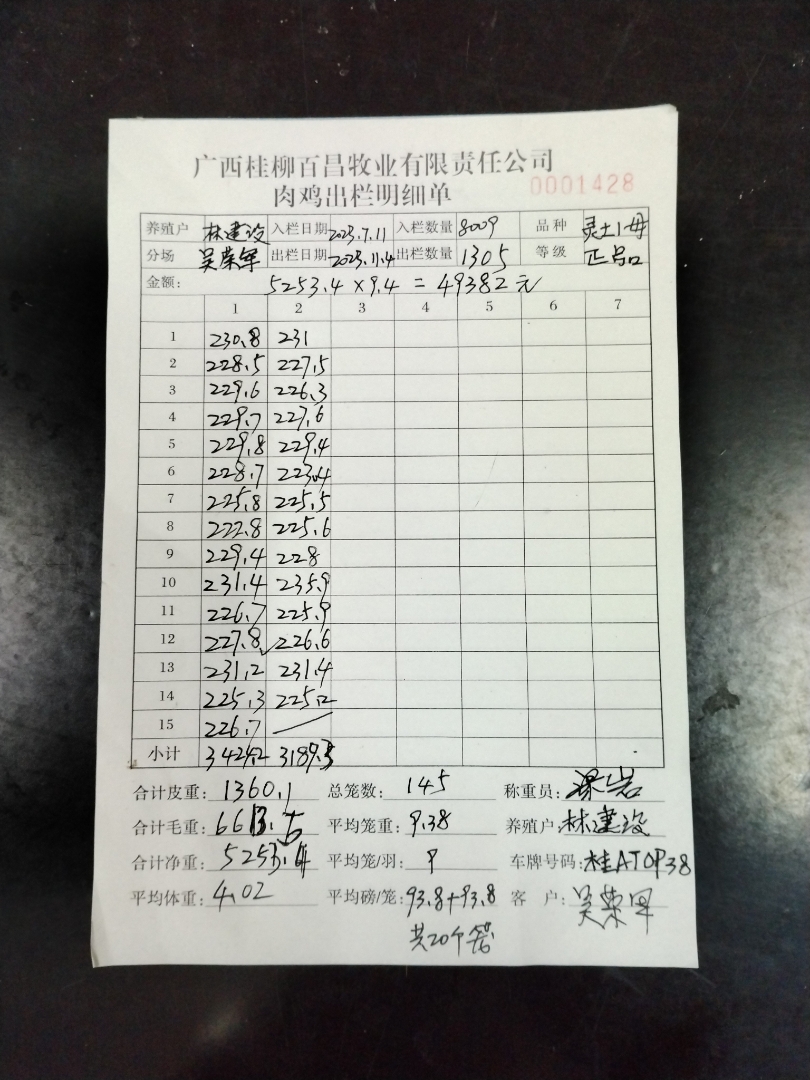 广西桂柳百昌牧业有限责任公司
肉鸡出栏明细单 0001428
养殖户 林建设 入栏日期 2023.7.11 入栏数量 8009 品种 灵土1母
分场 吴荣军 出栏日期 2023.11.4 出栏数量 1305 等级 正品
金额: 5253.4×9.4=49382元
1 2 3 4 5 6 7
1 230.8 231
2 228.5 227.5
3 229.6 226.3
4 229.7 227.6
5 229.8 229.4
6 228.7 223.4
7 225.8 225.5
8 222.8 225.6
9 229.4 228
10 231.4 235.9
11 226.7 225.9
12 227.8 226.6
13 231.2 231.4
14 225.3 225.2
15 226.7
小计 3424.2 3189.3
合计皮重: 1360.1 总笼数: 145 称重员: 梁岩
合计毛重: 6613.5 平均笼重: 9.38 养殖户: 林建设
合计净重: 5253.4 平均笼/羽: 9 车牌号码: 桂AT0P38
平均体重: 4.02 平均磅/笼: 93.8+93.8 客户: 吴荣军
共20个笼